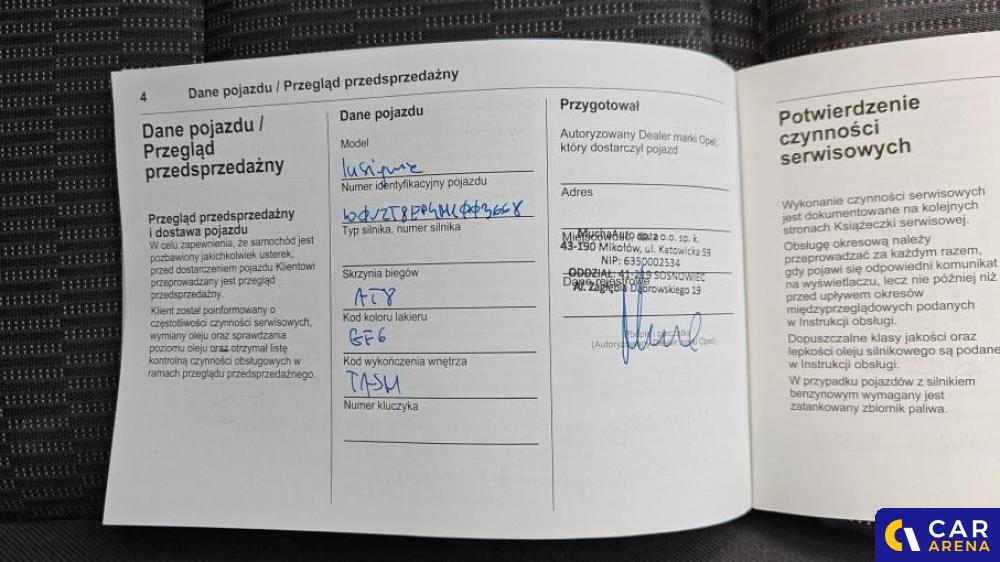 4
Dane pojazdu / Przegląd przedsprzedażny
Dane pojazdu /
Przegląd
przedsprzedażny
Przegląd przedsprzedażny
i dostawa pojazdu
W celu zapewnienia, że samochód jest
pozbawiony jakichkolwiek usterek,
przed dostarczeniem pojazdu Klientowi
przeprowadzany jest przegląd
przedsprzedażny.
Klient został poinformowany o
częstotliwości czynności serwisowych,
wymiany oleju oraz sprawdzania
poziomu oleju oraz otrzymał listę
kontrolną czynności obsługowych w
ramach przeglądu przedsprzedażnego.
Dane pojazdu
Model
Insignia
Numer identyfikacyjny pojazdu
Typ silnika, numer silnika
Skrzynia biegów
AT8
Kod koloru lakieru
GF6
Kod wykończenia wnętrza
TASM
Numer kluczyka
Przygotował
Autoryzowany Dealer marki Opel,
który dostarczył pojazd
Adres
MuchaAuto sp. z o.o. sp. k.
43-190 Mikołów, ul. Katowicka 59
NIP: 6350002534
ODDZIAŁ: 41-219 SOSNOWIEC
Dane rejestrowe
Al. Zagłębia Dąbrowskiego 19
Potwierdzenie
czynności
serwisowych
Wykonanie czynności serwisowych
jest dokumentowane na kolejnych
stronach Książeczki serwisowej.
Obsługę okresową należy
przeprowadzać za każdym razem,
gdy pojawi się odpowiedni komunikat
na wyświetlaczu, lecz nie później niż
przed upływem okresów
międzyprzeglądowych podanych
w Instrukcji obsługi.
Dopuszczalne klasy jakości oraz
lepkości oleju silnikowego są podane
w Instrukcji obsługi.
W przypadku pojazdów z silnikiem
benzynowym wymagany jest
zatankowany zbiornik paliwa.
CAR
ARENA